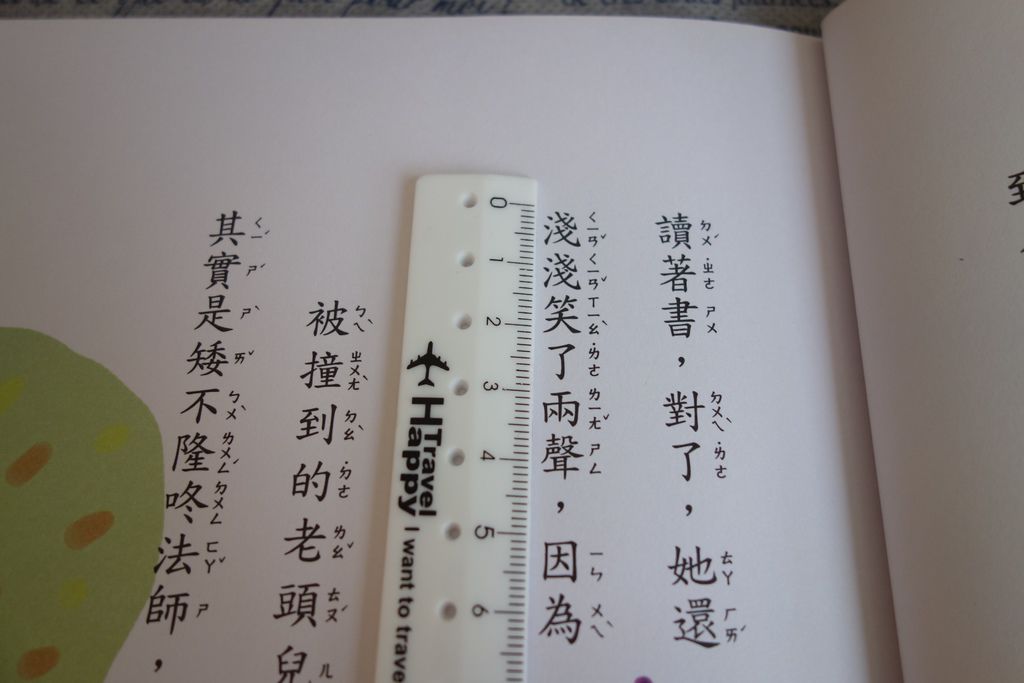 讀著書，對了，她還
淺淺笑了兩聲，因為
被撞到的老頭兒
其實是矮不隆咚法師，
0 1 2 3 4 5 6
Travel
Happy
I want to trave
到